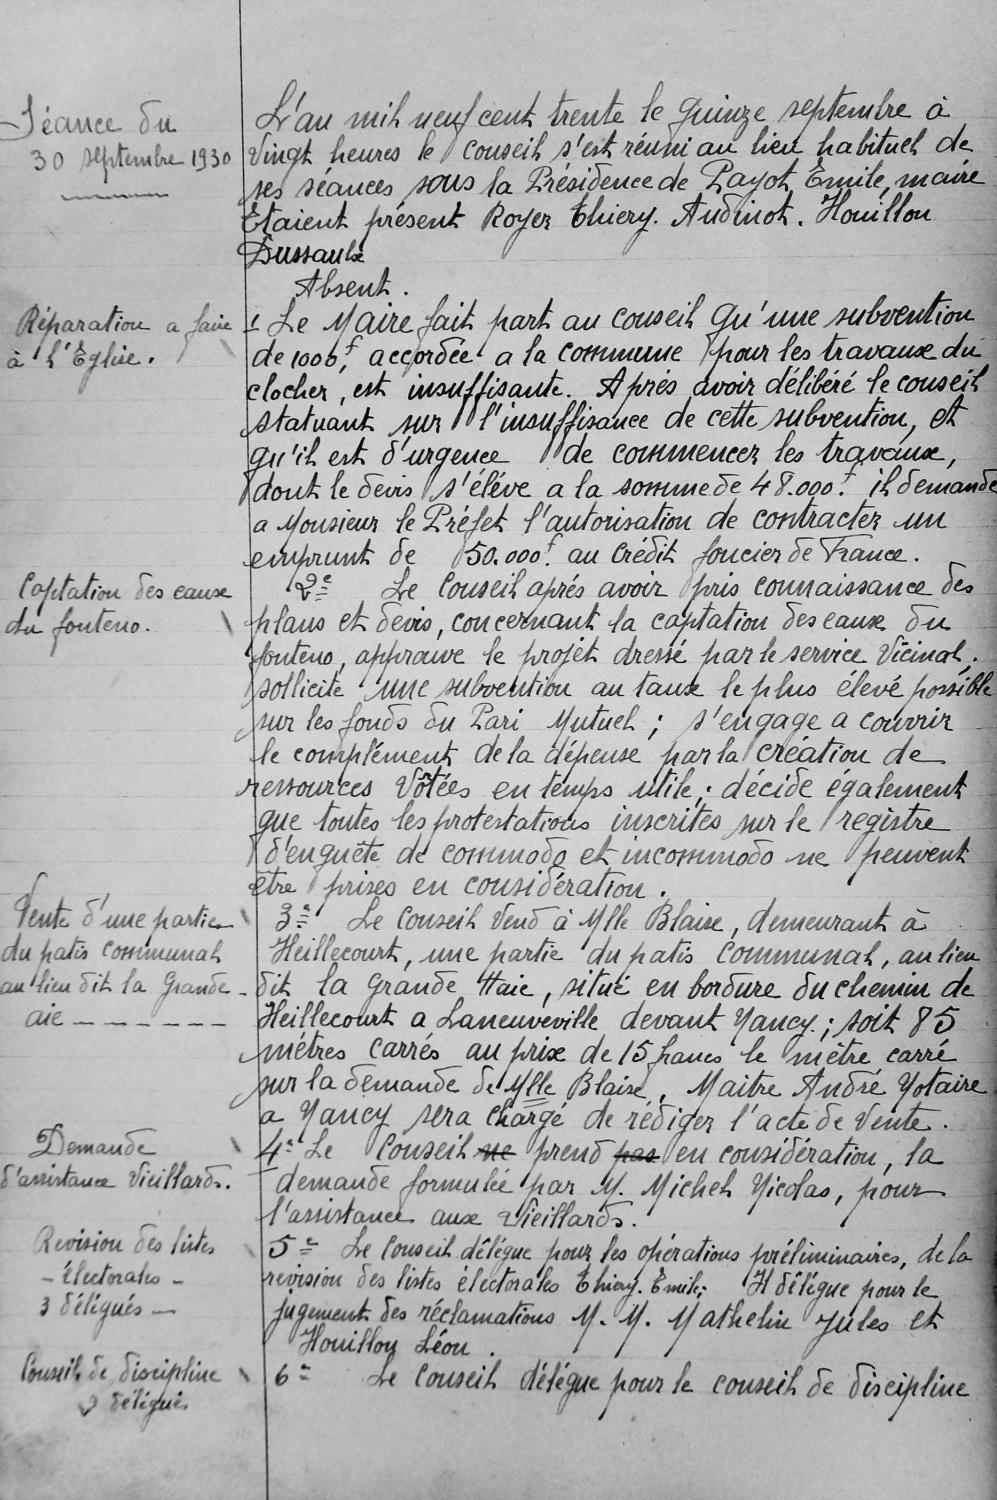 Séance du
30 septembre 1930
L'an mil neuf cent trente le quinze septembre à
vingt heures le conseil s'est réuni au lieu habituel de
ses séances sous la Présidence de Payot Emile, maire
Etaient présent Royer Thiery. Audinot. Houillon
Dussaulx
Absent.
Réparation a faire
à l'Eglise.
1 Le Maire fait part au conseil qu'une subvention
de 1000f, accordée a la commune pour les travaux du
clocher, est insuffisante. Aprés avoir délibéré le conseil
statuant sur l'insuffisance de cette subvention, et
qu'il est d'urgence de commencer les travaux,
dont le devis s'élève a la somme de 48.000f. il demande
a Monsieur le Préfet l'autorisation de contracter un
emprunt de 50.000f. au Crédit foncier de France.
Captation des eaux
du fonteno.
2e Le Conseil aprés avoir pris connaissance des
plans et devis, concernant la captation des eaux du
fonteno, approuve le projèt dressé par le service Vicinal.
sollicite une subvention au taux le plus élevé possible
sur les fonds du Pari Mutuel ; s'engage a couvrir
le complément de la dépense par la création de
ressources Vôtées en temps utile ; décide également
que toutes les protestations inscrites sur le registre
d'enquête de commodo et incommodo ne peuvent
être prises en considération.
Vente d'une partie
du patis communal
au lieu dit la Grande
aie - - - - - - -
3e Le Conseil Vend à Mlle Blaise, demeurant à
Heillecourt, une partie du patis Communal, au lieu
dit la Grande Haie, situé en bordure du chemin de
Heillecourt a Laneuveville devant Nancy ; soit 85
mètres carrés au prix de 15 francs le mètre carré
sur la demande de Mlle Blaise, Maitre André Notaire
a Nancy sera chargé de rédiger l'acte de Vente.
Demande
d'assistance Vieillards.
4e Le Conseil ne prend pas en considération, la
demande formulée par M. Michel Nicolas, pour
l'assistance aux Vieillards.
Revision des listes
- Électorales -
3 délégués -
5e Le Conseil délégue pour les opérations préliminaires, de la
revision des listes électorales Thiery. Emile; Il délégue pour le
jugement des réclamations M. M. Mathelin Jules et
Houillon Léon.
Conseil de discipline
délégués
6e Le Conseil délégue pour le conseil de discipline